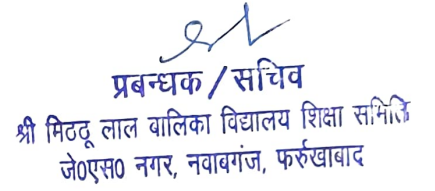 प्रबन्धक / सचिव
श्री मिठ्ठू लाल बालिका विद्यालय शिक्षा समिति
जे०एस० नगर, नवाबगंज, फर्रुखाबाद